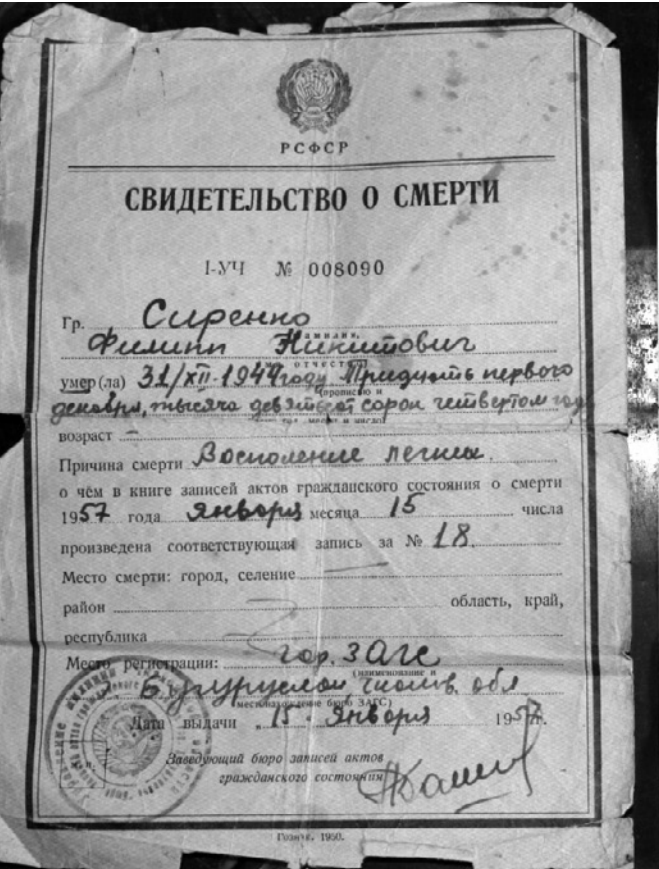 РСФСР
СВИДЕТЕЛЬСТВО О СМЕРТИ
I-УЧ № 008090
Гр. Сиренко
фамилия,
Филипп Никитович
отчество
умер (ла) 31/XII-1944 году Тридцать первого
прописью и
декабря, тысяча девятьсот сорок четвертом год
возраст —
Причина смерти Восполение легких.
о чём в книге записей актов гражданского состояния о смерти
1957 года Января месяца 15 числа
произведена соответствующая запись за № 18
Место смерти: город, селение
район область, край,
республика
Место регистрации: гор. ЗАГС
(наименование и
г. Бугуруслан, обл
местонахождение бюро ЗАГС)
Дата выдачи „15" Января 1957г.
Заведующий бюро записей актов
гражданского состояния
Гознак. 1950.